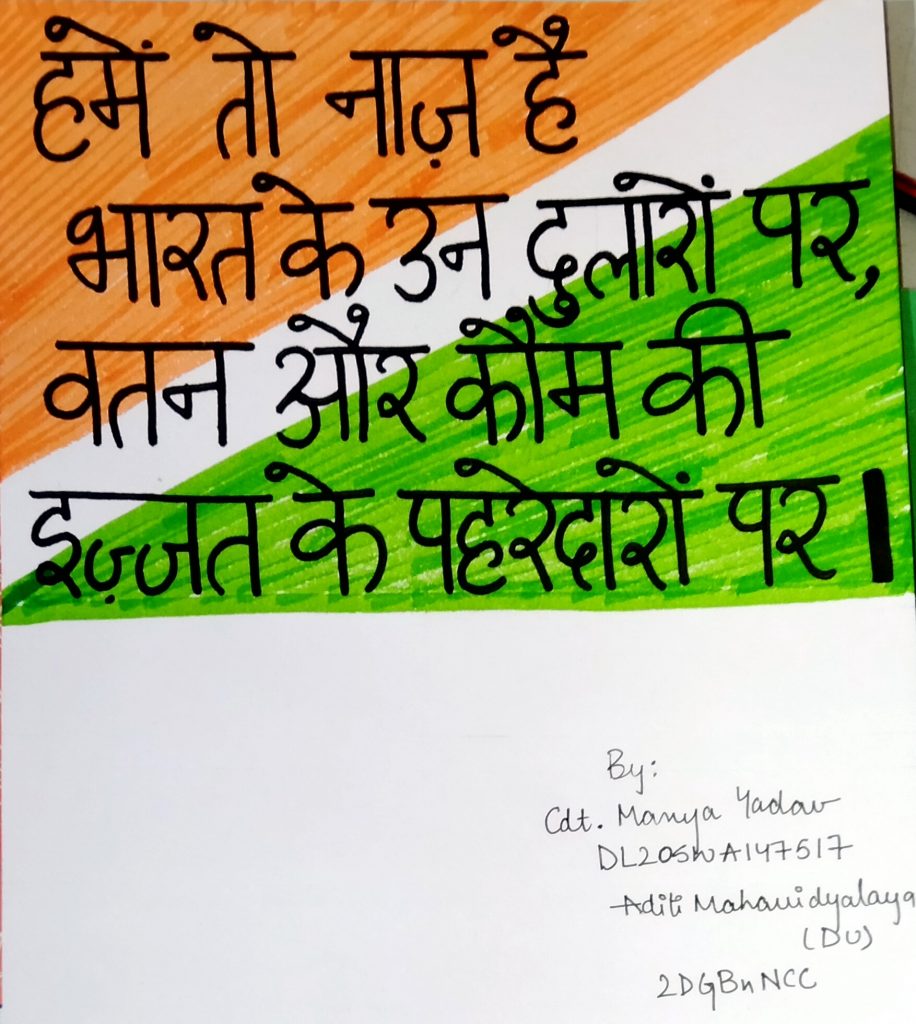 हमें तो नाज़ है
भारत के उन दुलारों पर,
वतन और कौम की
इज़्जत के पहरेदारों पर।
By:
Cdt. Manya Yadav
DL20SWA147517
Aditi Mahavidyalaya
(DU)
2DGBnNCC